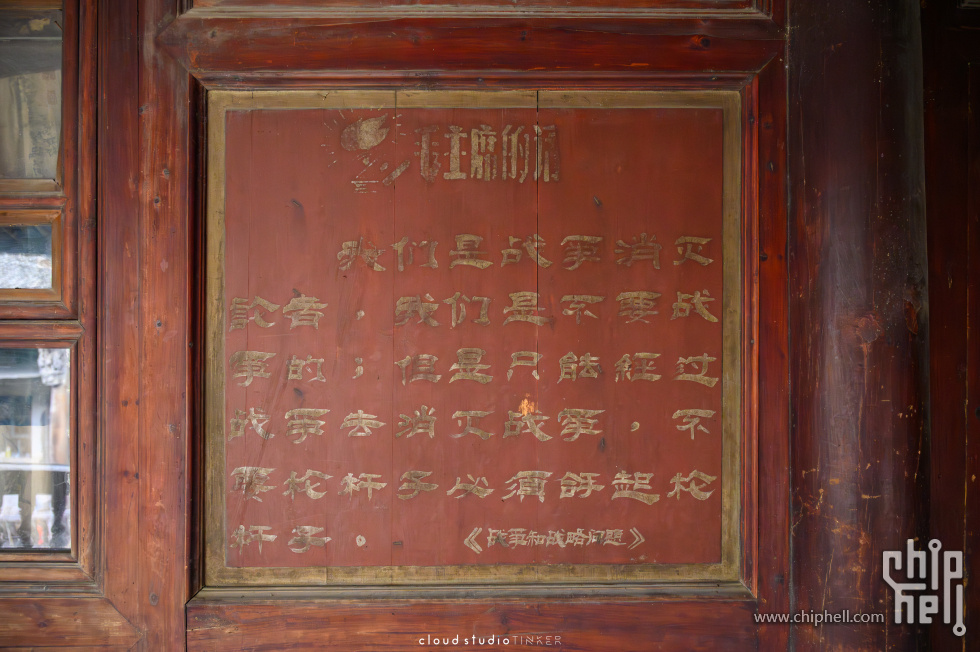 毛主席的
我们是战争消灭
论者，我们是不要战
争的；但是只能经过
战争去消灭战争，不
要枪杆子必须拿起枪
杆子。 《战争和战略问题》
cloud studio TINKER
www.chiphell.com
chip hell